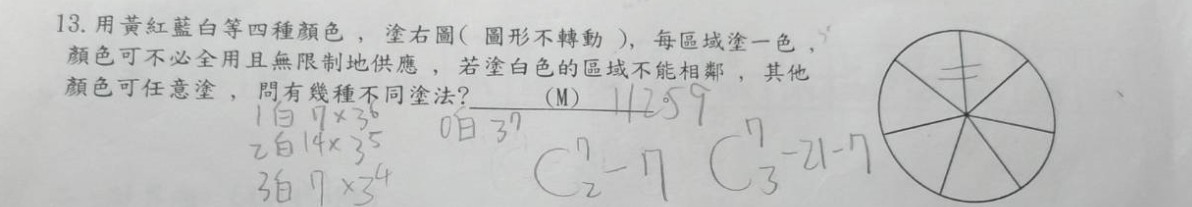 13. 用黃紅藍白等四種顏色，塗右圖( 圖形不轉動 )，每區域塗一色，
顏色可不必全用且無限制地供應，若塗白色的區域不能相鄰，其他
顏色可任意塗，問有幾種不同塗法? (M) 11259
1白 7×3⁶ 0白 3⁷
2白 14×3⁵ C⁷₂-7 C⁷₃-21-7
3白 7×3⁴